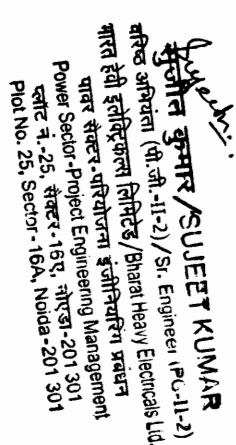 सुजीत कुमार/SUJEET KUMAR
वरिष्ठ अभियंता (पी.जी.-II-2)/Sr. Engineer (PG-II-2)
भारत हेवी इलेक्ट्रिकल्स लिमिटेड/Bharat Heavy Electricals Ltd.
पावर सैक्टर-परियोजना इंजीनियरिंग प्रबंधन
Power Sector-Project Engineering Management
प्लॉट नं.-25, सैक्टर-16ए, नोएडा-201 301
Plot No. 25, Sector-16A, Noida-201 301